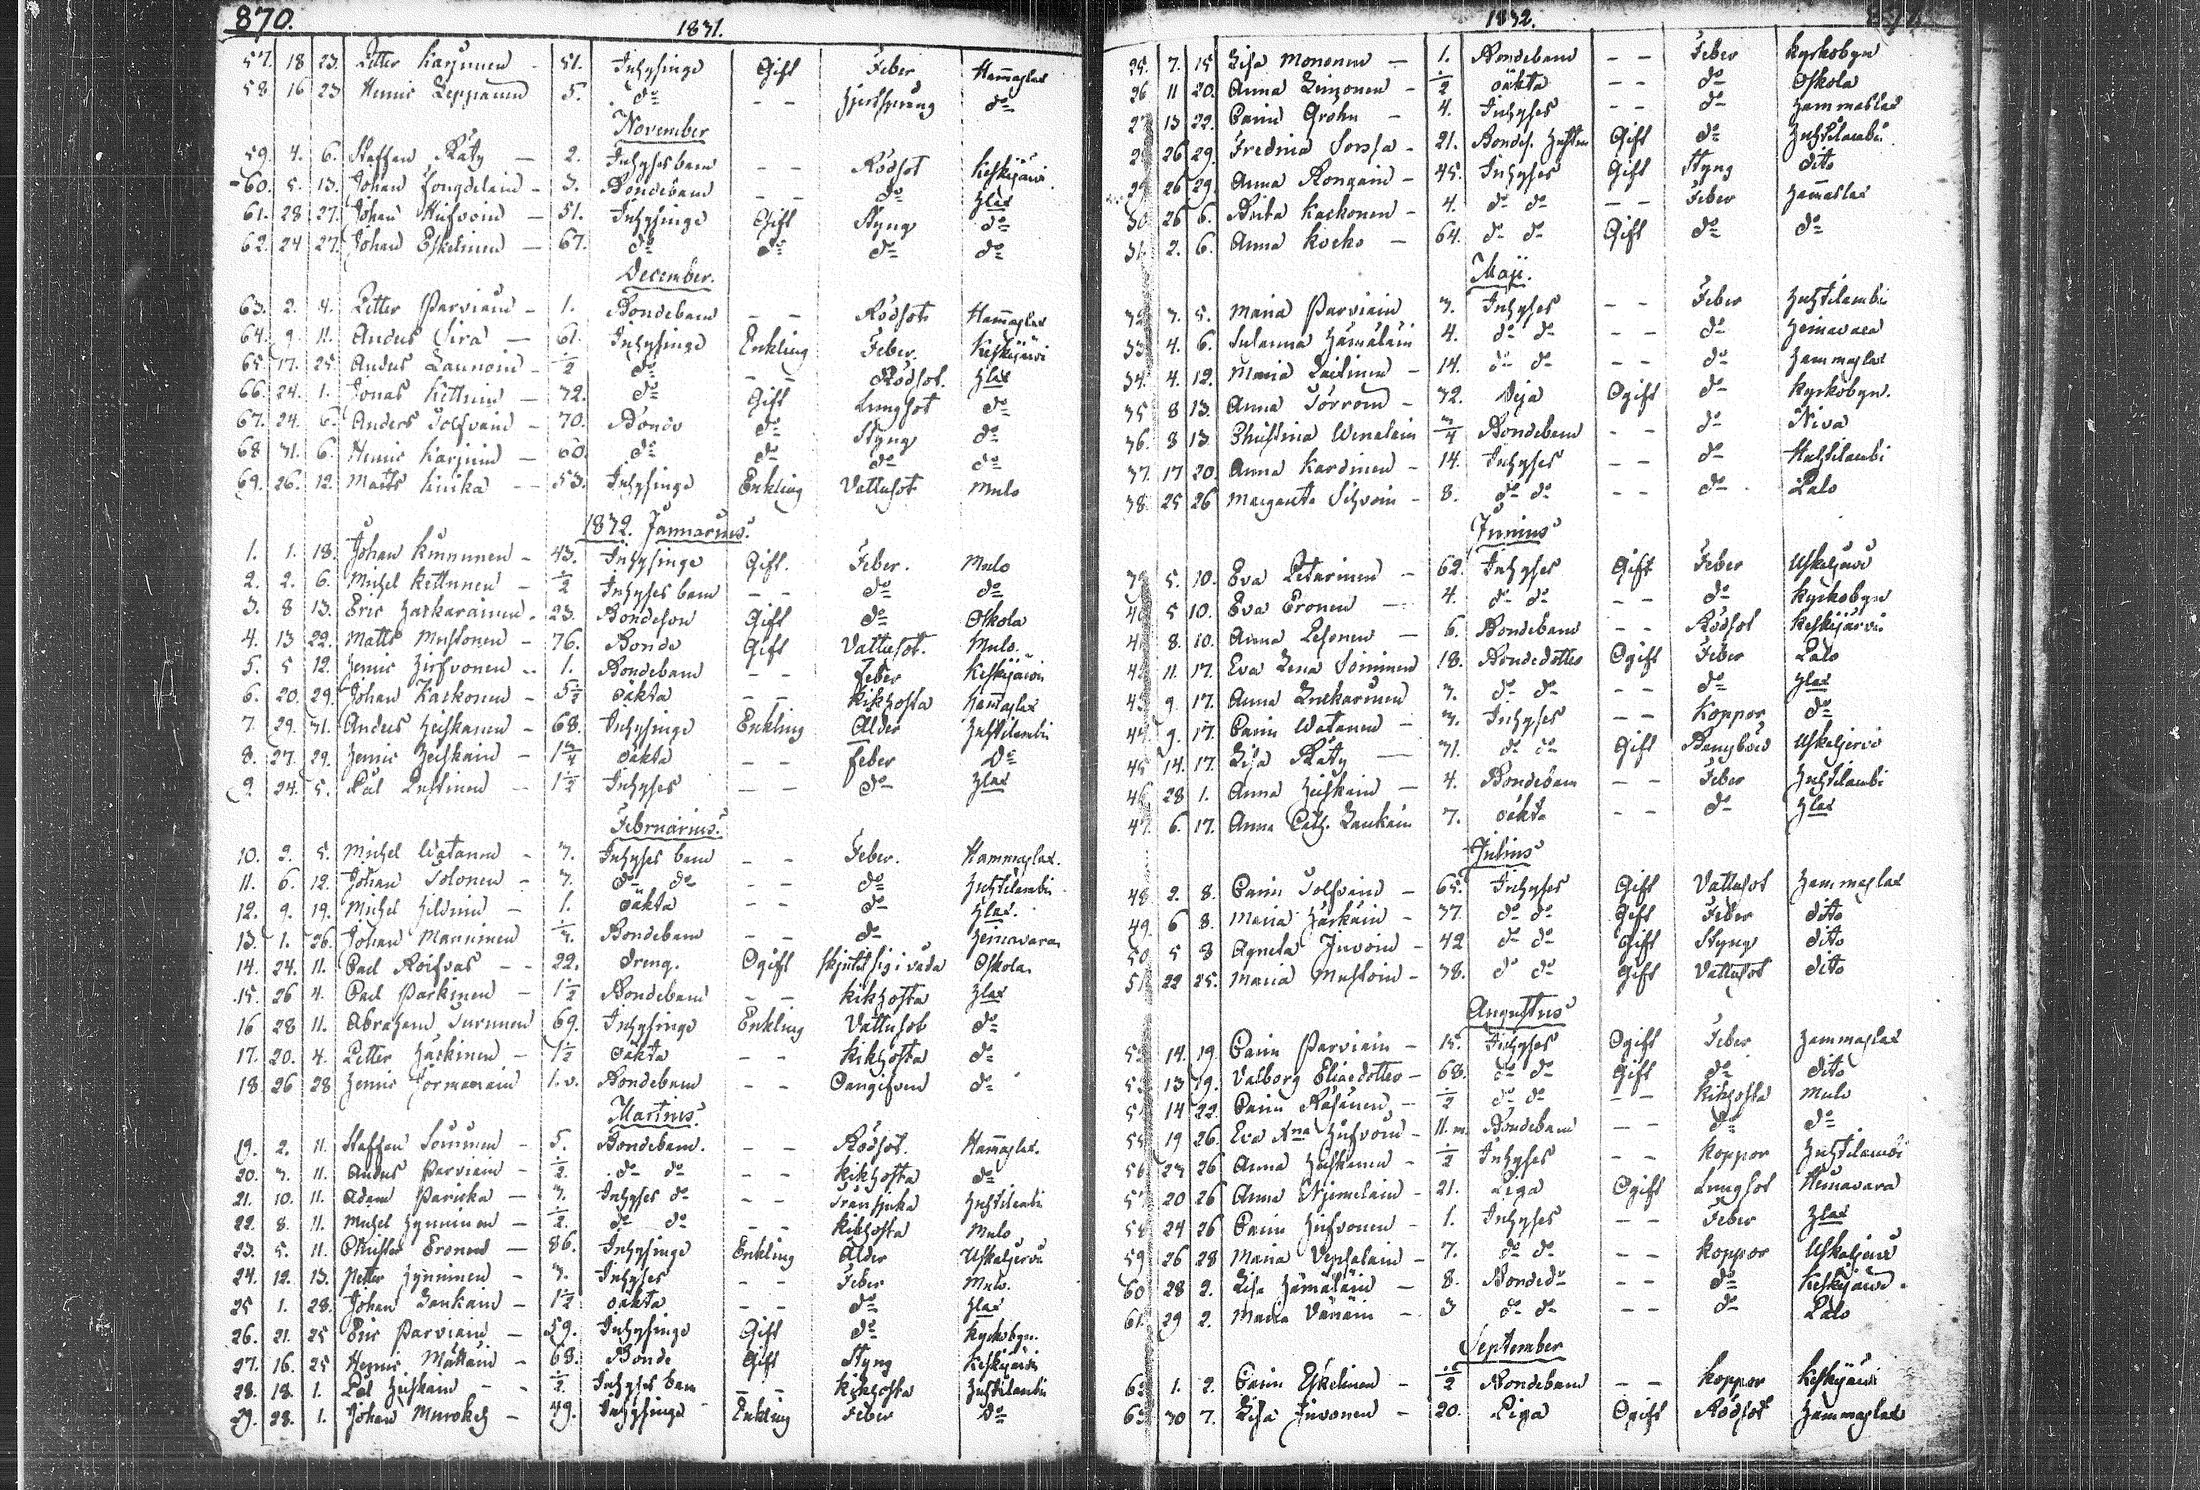 870.
1831.
57. 18 23 Petter Karjunen - 51. Inhysinge Gift Feber Hammaslax
58 16 23 Henric Leppänen 5. do - - do
November
59. 4. 6. Staffan Räty - 2. Inhyses barn - - Rödsot Keskijärvi
60. 5. 13. Johan - 3. Bondebarn - - do Hlax
61. 28 27. Johan Hirfvoin - 51. Inhysinge Gift Styng do
62. 24 27. Johan Eskelinen - 67. do do do do
December.
63. 2. 4. Petter Parviain - 1. Bondebarn - - Rödsot Hammaslax
64. 9. 11. Anders Sira - 61. Inhysinge Enkling Feber. Keskijärvi
65. 17. 25. Anders Launoin - 1/2 do - - Rödsot. Hlax
66. 24. 1. Jonas Kettuin - 72. do Gift Lungsot do
67. 24. 6. Anders Tolfvain - 70. Bonde do Styng do
68 31. 6. Henric Karjuin - 60. do do do do
69. 26. 12. Matts - 53. Inhysinge Enkling Vattusot Mulo
1832. Januarius.
1. 1. 18. Johan Kinnunen - 43. Inhysinge Gift. Feber. Mulo
2. 2. 6. Michel Kettunen - 1/2 Inhyses barn - - do do
3. 8 13. Eric Haskarainen - 23. Bondeson Gift do Oskola
4. 13 22. Matts Mustonen - 76. Bonde Gift Vattusot. Mulo.
5. 5 12. Henric Hirfvonen - 1. Bondebarn - - Feber Keskijärvi
6. 20. 29. Johan Kaskonen - 5 1/2 oäkta - - Kikhosta Hammaslax
7. 29. 31. Anders Heiskanen - 68. Inhysinge Enkling Ålder Huhtilambi
8. 27. 29. Henric Heiskain - 1 3/4 oäkta - - feber do
9. 24. 5. Pål Pustinen - 1 1/2 Inhyses - - do Hlax
Februarius.
10. 2. 5. Michel Watanen - 3. Inhyses barn - - Feber. Hammaslax.
11. 6. 12. Johan Tolonen - 3. do do - - do Huhtilambi
12. 9. 19. Michel - 1. oäkta - - do Hlax.
13. 1. 26. Johan Manninen Bondebarn - - do Heinavara
14. 24. 11. Carl Roifvas - - 22. dreng. Ogift skjutit sig i våda Oskola.
15. 26 4. Carl Parkinen - 1 1/2 Bondebarn - - Kikhosta Hlax
16 28 11. Abraham Turunen 69. Inhysinge Enkling Vattusot do
17. 20. 4. Petter Häckinen - 1 1/2 oäkta - - Kikhosta do
18. 26 28 Henric Jormanain 1. v. Bondebarn - - Oangifven do
Martius.
19. 2. 11. Staffan Soininen - 5. Bondebarn. - - Rödsot. Hammaslax.
20. 3. 11. Anders Parviain - 1/2. do do - - Kikhosta do
21. 10. 11. Adam - 3. Inhyses do - - Huhtilambi
22. 8. 11. Michel Hynninen - 1/2. do do - - Kikhosta Mulo
23. 5. 11. Christer Eronen - 86. Inhysinge Enkling Ålder Uskaljervi
24. 12. 13. Petter Hynninen - 3. Inhyses - - Feber Mulo.
25 1. 28. Johan Laukain - 1 1/2 oäkta - - do Hlax
26. 21. 25 Eric Parviain - 59. Inhysinge Gift do Kyrkobyn.
27. 16. 25 Henric Mättäin - 68. Bonde Gift Styng Keskijärvi
28. 18. 1. Pål Heiskain - - 1/2. Inhyses barn - - Kikhosta Huhtilambi
29. 28. 1. Johan - 49. Inhysinge Enkling Feber do
1832.
25. 7. 15 Lisa Mononen - 1. Bondebarn - - Feber Kyrkobyn
26 11 20. Anna Leinonen - 1/2 oäkta - - do Oskola
27. 13 22. Carin Grohn - 4. Inhyses - - do Hammaslax
28 26 29. Fredrica - 21. Bondes Hustru Gift do Huhtilambi
29. 26 29. Anna Rongain - 45. Inhyses Gift Styng dito
30. 26 6. Brita Kaskonen - 4. do do - - Feber Hammaslax
31. 2. 6. Anna Kocko - 64. do do Gift do do
Maji.
32. 3. 5. Maria Parviain 3. Inhyses - - Feber Huhtilambi
33. 4. 6. Susanna Hämäläin 4. do do - - do Heinavara
34. 4. 12. Maria - 14. do do - - do Hammaslax
35 8 13. Anna - 32. Deja Ogift do Kyrkobyn.
36. 8 13 Christina Wenäläin 3/4 Bondebarn - - do Niva
37. 17 20. Anna Kardinen - 14. Inhyses - - do Huhtilambi
38. 25 26 Margareta Silvoin - 8. do do - - do Palo
Junius
39. 5. 10. Eva Petarinen - 62. Inhyses Gift Feber Uskaljervi
40. 5 10. Eva Eronen - 4. do do - - do Kyrkobyn
41. 8. 10. Anna Pesonen - 6. Bondebarn - - Rödsot Keskijärvi
42. 11. 17. Eva Lena Soininen 18. Bondedotter Ogift Feber Palo
43. 9. 17. Anna 3. do do - - do Hlax
44. 9. 17. Carin Watanen - 3. Inhyses - - Koppor do
45 14. 17. Lisa Räty - 31. do do Gift Barnsbörd Uskaljervi
46 28 1. Anna Heiskain - 4. Bondebarn - - Feber Huhtilambi
47. 6. 17. Anna Cath. Laukain 7. oäkta - - do Hlax
Julius
48. 2. 8. Carin Tolfvain - 65. Inhyses Gift Vattusot Hammaslax
49. 6 8. Maria Härkäin - 37. do do Gift Feber dito
50. 5 8 Agneta Juvoin - 42 do do Gift Styng dito
51. 22 25. Maria Mustoin - 38. do do Gift Vattusot dito
Augustus
52. 14. 19. Carin Parviain - 15. Inhyses Ogift Feber Hammaslax
53. 13 19. Valborg Eliaedotter - 68. do do Gift do dito
54. 14 22. Carin Räsänen - 1/2 do do - - Kikhosta Mulo
55. 19 26. Eva Ana Hirfvoin - 11. m. Bondebarn - - do do
56. 23 26 Anna Heiskanen - 1/2 Inhyses - - Koppor Huhtilambi
57. 20 26 Anna - 21. Piga Ogift Lungsot Heinavara
58. 24 26 Carin Hirfvonen - 1. Inhyses - - Feber Hlax
59 26 28 Maria Vepsäläin - 7. do do - - Koppor Uskaljervi
60 28 2. Lisa Hämäläin - 8. Bonde do - - do Keskijärvi.
61. 29 2. Maria Vänäin - 3 do do - - do Palo
September
62. 1. 2. Carin Eskelinen - 1/2 Bondebarn - - Koppor Keskijärvi
63. 30 7. Lisa Juvonen - 20. Piga Ogift Rödsot Hammaslax